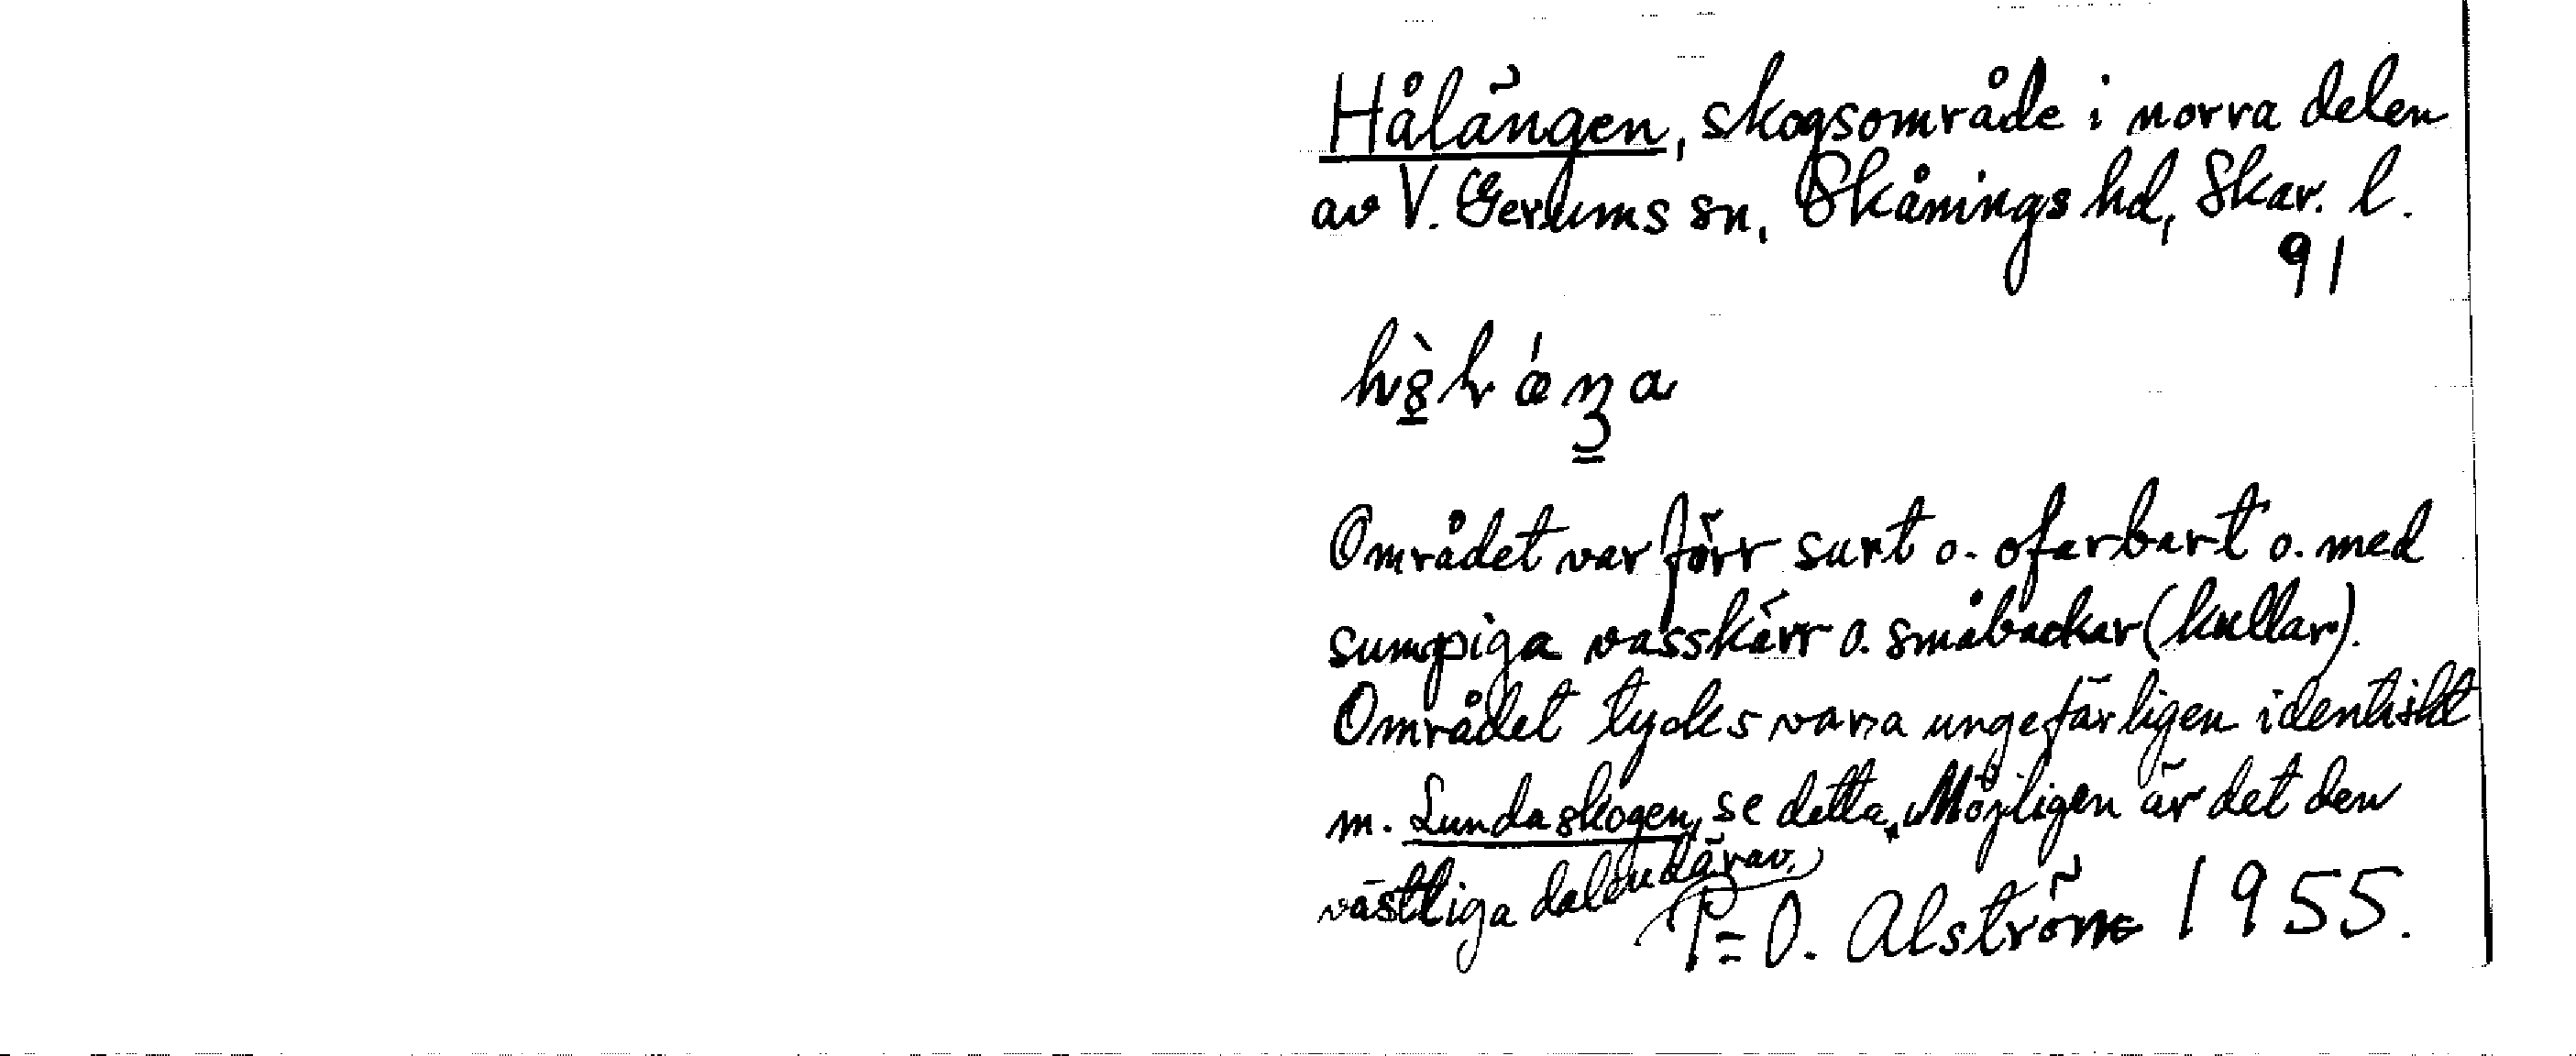 Hålängen, skogsområde i norra delen
av V. Gerums sn, Skånings hd, Skar. l.
91
Området var förr surt o. ofarbart o. med
sumpiga vasskärr o. småbackar (kullar).
Området tycks vara ungefärligen identiskt
m. Lundaskogen, se detta. Möjligen är det den
västliga delen därav.
P=O. Alström 1955.